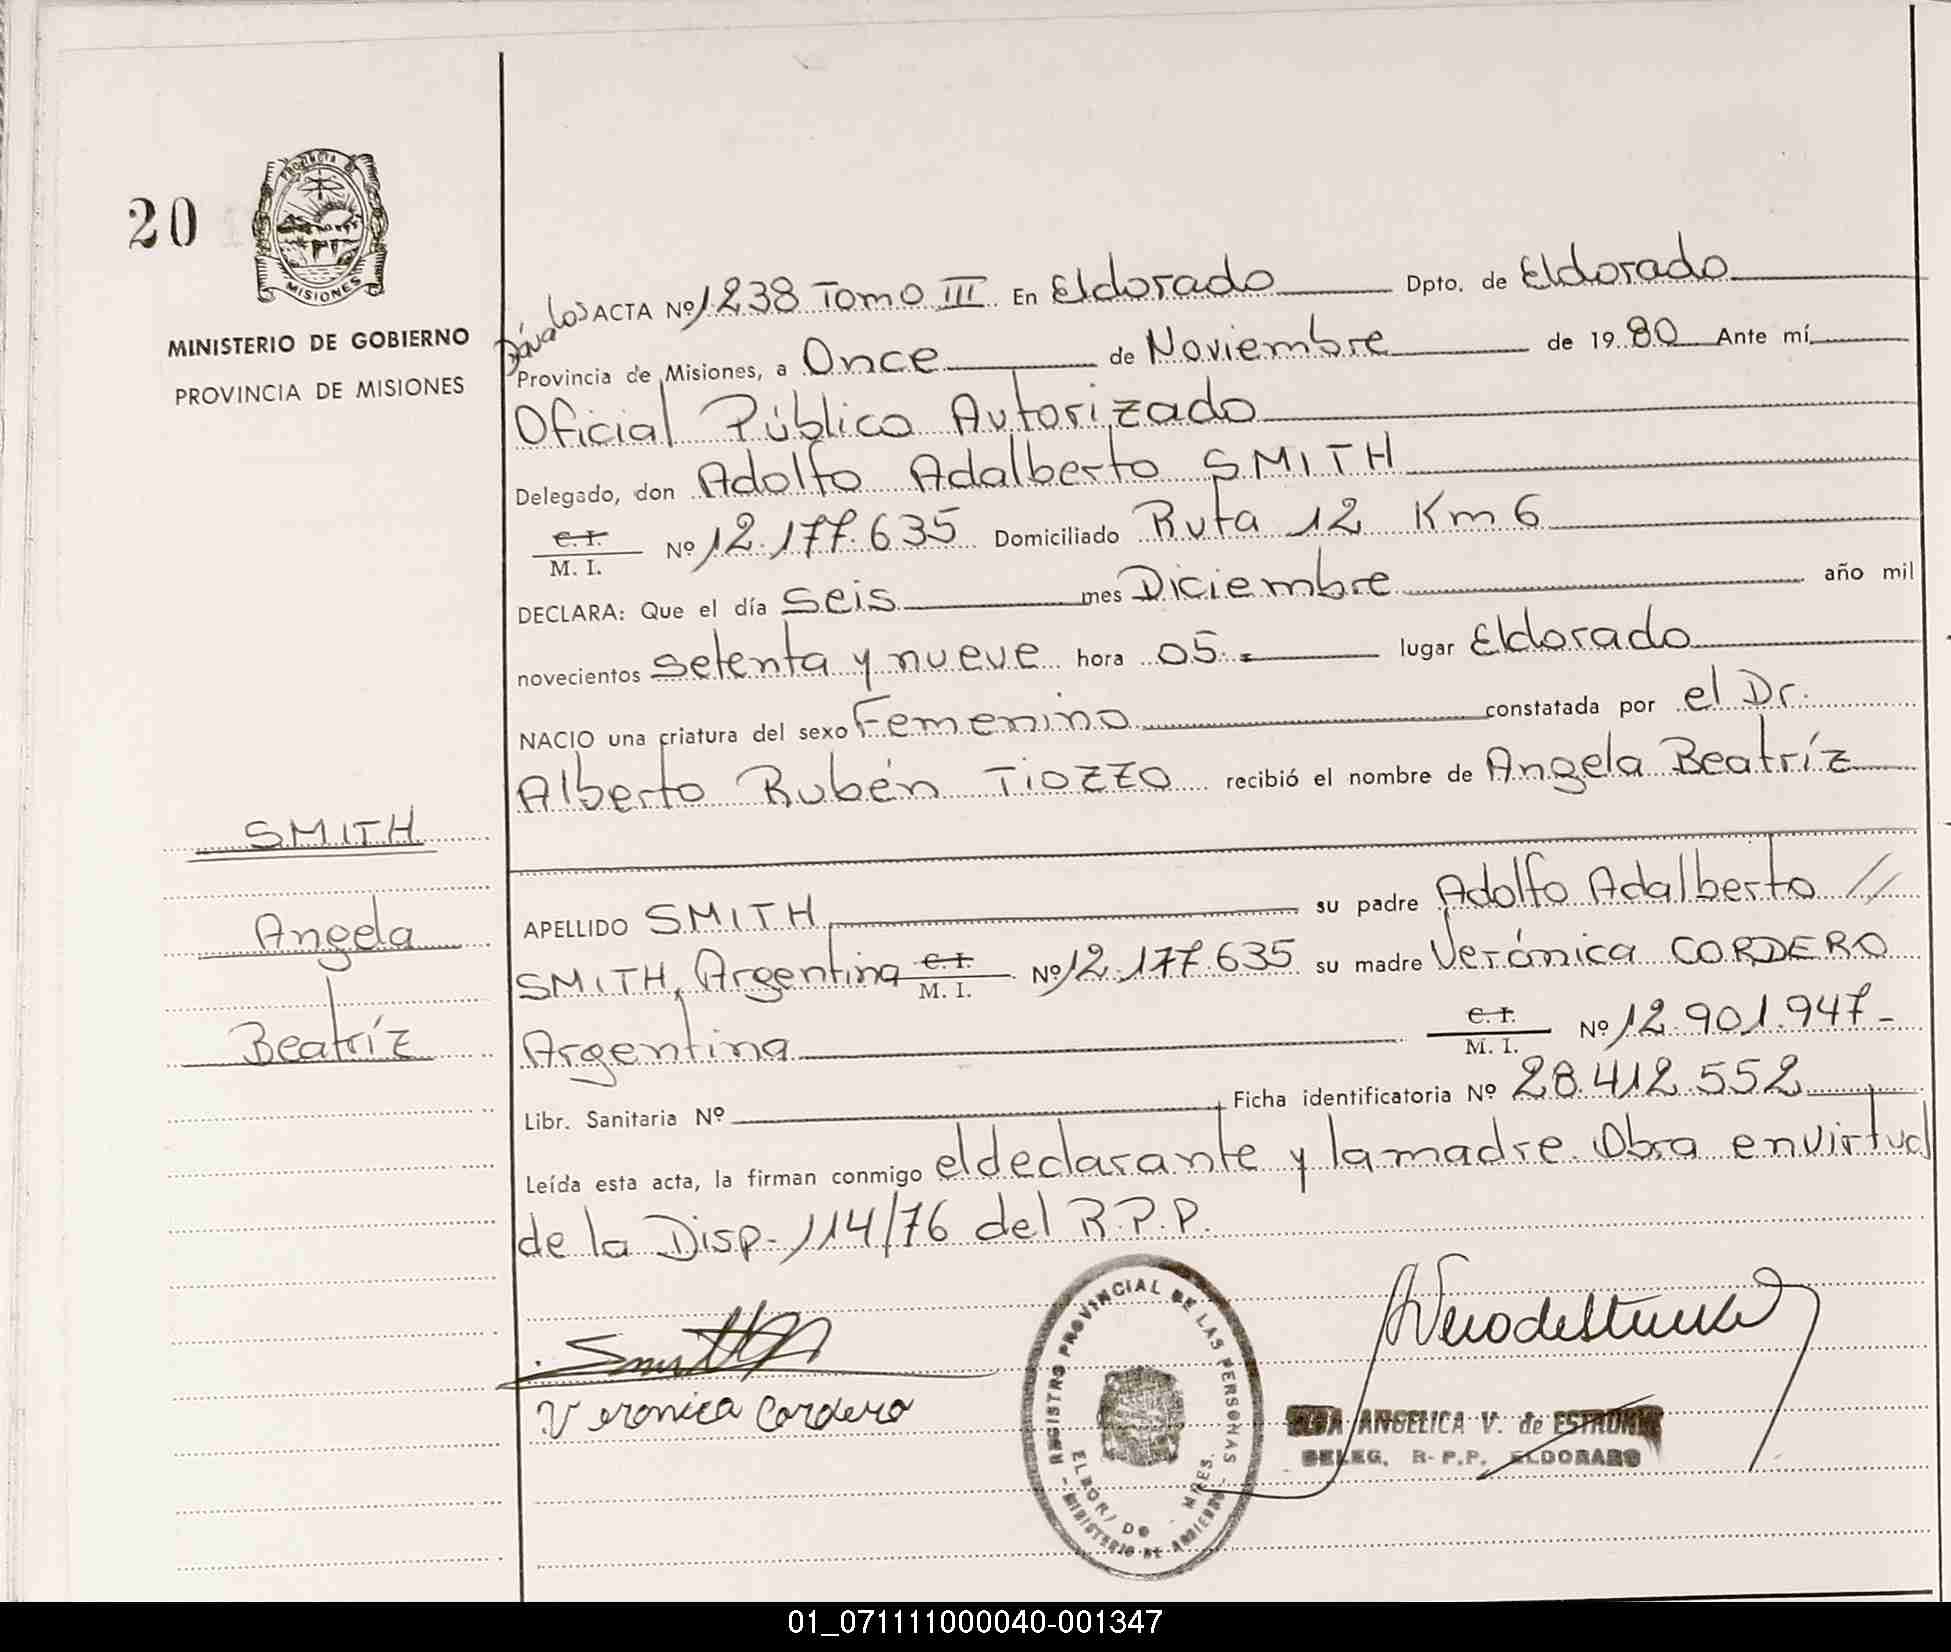 20
PROVINCIA DE
MISIONES
MINISTERIO DE GOBIERNO
PROVINCIA DE MISIONES
SMITH
Angela
Beatríz
Dávalos ACTA Nº 1238 Tomo III En Eldorado Dpto. de Eldorado
Provincia de Misiones, a Once de Noviembre de 1980 Ante mí
Oficial Público Autorizado
Delegado, don Adolfo Adalberto SMITH
C. I. M. I. Nº 12.177.635 Domiciliado Ruta 12 Km 6
DECLARA: Que el día Seis mes Diciembre año mil
novecientos setenta y nueve hora 05.= lugar Eldorado
NACIO una criatura del sexo Femenino constatada por el Dr.
Alberto Rubén TIOZZO recibió el nombre de Angela Beatríz
APELLIDO SMITH su padre Adolfo Adalberto //
SMITH, Argentina C. I. M. I. Nº 12.177.635 su madre Verónica CORDERO
Argentina C. I. M. I. Nº 12.901.947-
Libr. Sanitaria Nº Ficha identificatoria Nº 28.412.552
Leída esta acta, la firman conmigo el declarante y la madre. Obra en virtud
de la Disp. 114/76 del R.P.P.
Veronica Cordero
REGISTRO PROVINCIAL DE LAS PERSONAS
ELDORADO - MNES.
- MINISTERIO DE GOBIERNO -
ANGELICA V. de
DELEG. R.P.P. ELDORADO
01_071111000040-001347